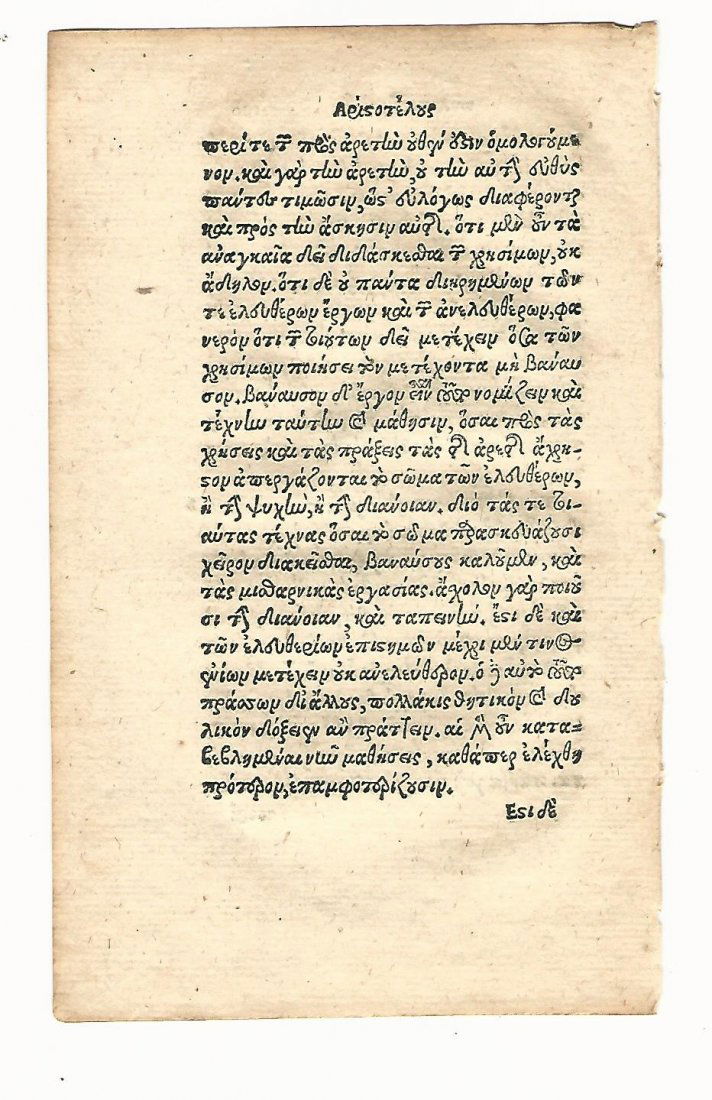 Αριστοτέλους
περίτε τῶν πρὸς ἀρετὴν οὐθέν ἐστιν ὁμολογούμε
νον. καὶ γὰρ τὴν ἀρετὴν, οὐ τὴν αὐτὴν εὐθὺς
πάντες τιμῶσιν, ὥστ' εὐλόγως διαφέρονται
καὶ πρὸς τὴν ἄσκησιν αὐτῆς. ὅτι μὲν οὖν τὰ
αναγκαῖα δεῖ διδάσκεσθαι τῶν χρησίμων, οὐκ
ἄδηλον. ὅτι δὲ οὐ πάντα διῃρημένων τῶν
τε ἐλευθέρων ἔργων καὶ τῶν ἀνελευθέρων, φα
νερὸν ὅτι τῶν τοιούτων δεῖ μετέχειν ὅσα τῶν
χρησίμων ποιήσει τὸν μετέχοντα μὴ βάναυ
σον. βάναυσον δ' ἔργον εἶναι δεῖ τοῦτο νομίζειν καὶ
τέχνην ταύτην καὶ μάθησιν, ὅσαι πρὸς τὰς
χρήσεις καὶ τὰς πράξεις τὰς τῆς ἀρετῆς ἄχρη-
στον ἀπεργάζονται τὸ σῶμα τῶν ἐλευθέρων,
ἢ τὴν ψυχὴν, ἢ τὴν διάνοιαν. διὸ τάς τε τοι-
αύτας τέχνας ὅσαι τὸ σῶμα παρασκευάζουσι
χεῖρον διακεῖσθαι, βαναύσους καλοῦμεν, καὶ
τὰς μισθαρνικὰς ἐργασίας. ἄχολον γὰρ ποιοῦ
σι τὴν διάνοιαν, καὶ ταπεινήν. ἔστι δὲ καὶ
τῶν ἐλευθερίων ἐπιστημῶν μέχρι μέν τινος
ἐνίων μετέχειν οὐκ ανελεύθερον. ὁ δὲ αὐτὸ τοῦτο
πράσσων δι' ἄλλους, πολλάκις θητικὸν καὶ δου
λικὸν δόξειεν ἂν πράττειν. αἱ μὲν οὖν κατα-
βεβλημέναι νῦν μαθήσεις, καθάπερ ἐλέχθη
πρότερον, ἐπαμφοτερίζουσιν.
Εστι δὲ